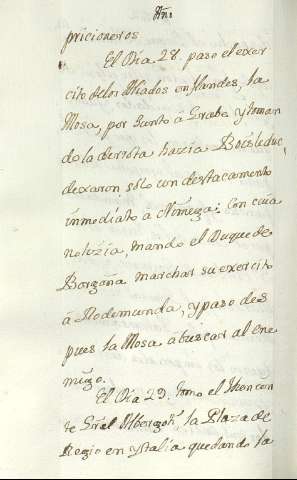 Año
pricioneros
El Dia 28. paso el exer
cito delos Aliados en Flandes, la
Mosa, por junto à Grabe y toman
do la derrota hazia Bolsleduc,
dexaron solo con destacamento
inmediato à Nimega: Con cuia
notizia, mando el Duque de
Borgoña marchar su exercito
à Rodemunda, y paso des
pues la Mosa à buscar al ene
migo.
El Dia 29. tomo el
te Gral Albergoti, la Plaza de
Regio en ytalia quedando la